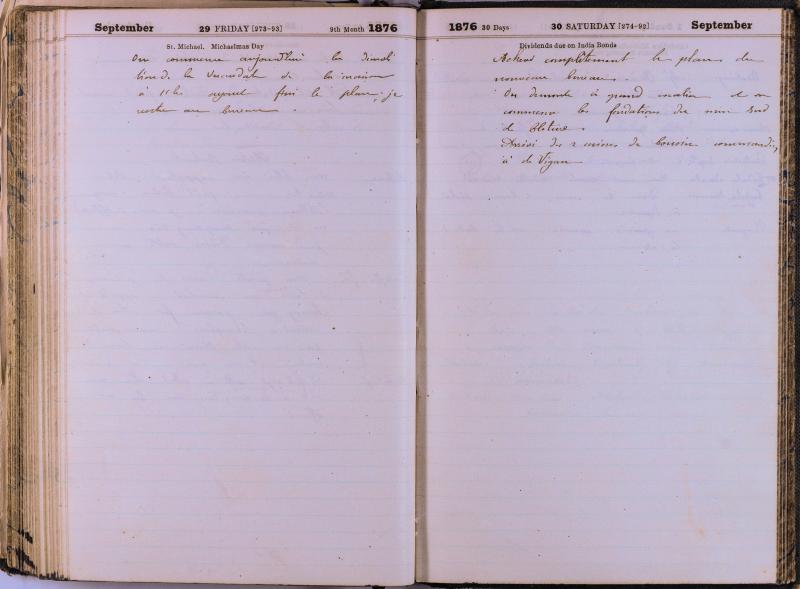 September 29 FRIDAY [273-93] 9th Month 1876
St. Michael. Michaelmas Day
On commence aujourd'hui la démoli
tion de la de la maison
à 11 h fini le plan ; je
reste au bureau .
1876 30 Days 30 SATURDAY [274-92] September
Dividends due on India Bonds
Achevé complètement le plan du
nouveau bureau .
On demande à grand matin
commence les fondations du mur sud
de .
Arrivé des 2 caisses de commandées
à de Vigan